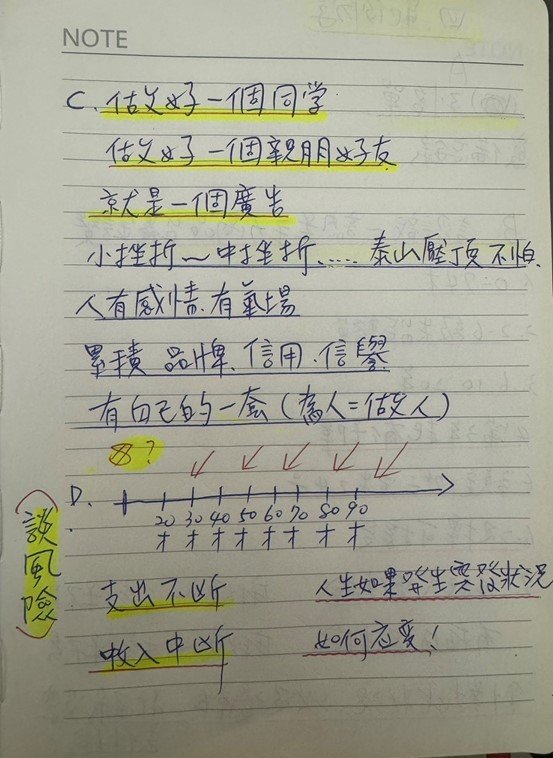 NOTE
C. 做好一個同学
做好一個親朋好友
就是一個廣告
小挫折～中挫折..... 泰山壓頂不怕
人有感情.有氣場
累積 品牌.信用.信譽
有自己的一套(為人=做人)
?
D.
20 30 40 50 60 70 80 90
才 才 才 才 才 才 才 才
(談風險)
支出不断 人生如果發生突發狀況
收入中断 如何应变!